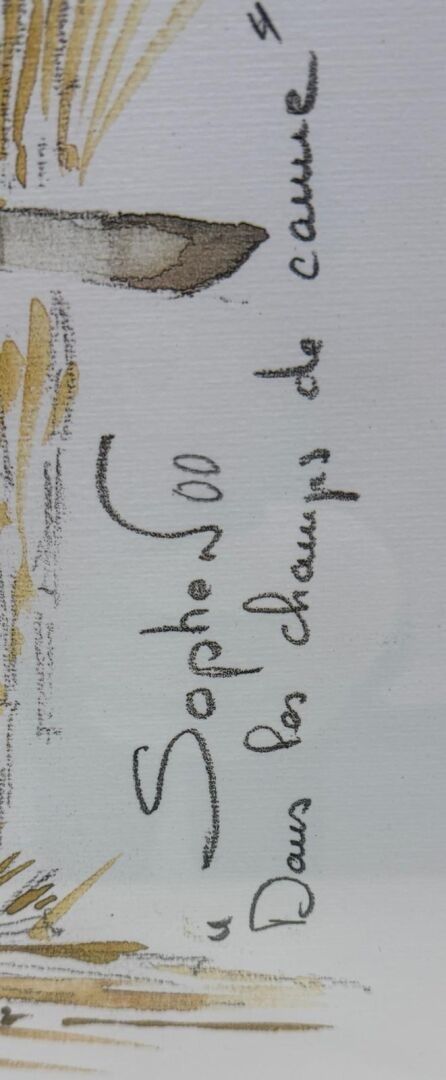 Sophe 00
"Dans les champs de canne"